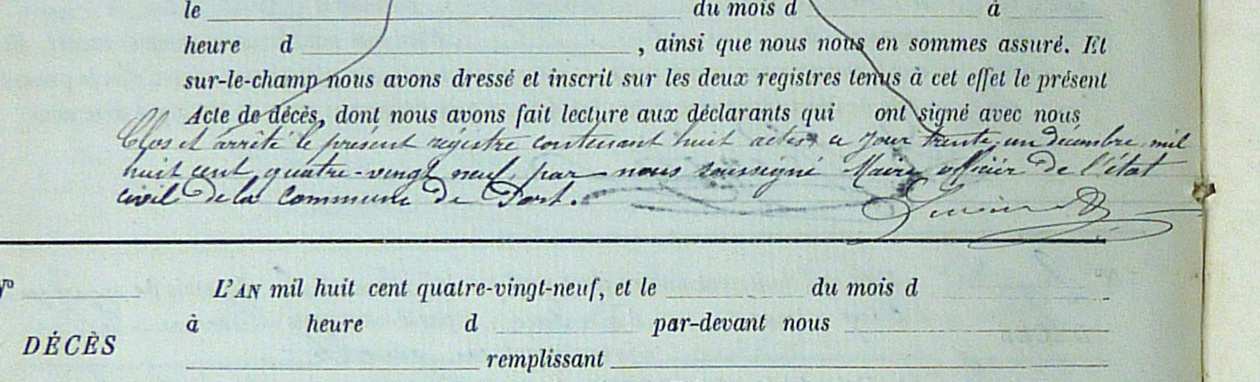 le du mois d à
heure d , ainsi que nous nous en sommes assuré. Et
sur-le-champ nous avons dressé et inscrit sur les deux registres tenus à cet effet le présent
Acte de décès, dont nous avons fait lecture aux déclarants qui ont signé avec nous
Clos et arrêté le présent régistre contenant huit actes ce jour trente-un décembre mil
huit cent quatre-vingt neuf, par nous soussigné Maire officier de l'état
civil de la Commune de Port.
L'AN mil huit cent quatre-vingt-neuf, et le du mois d
à heure d par-devant nous
DÉCÈS
remplissant